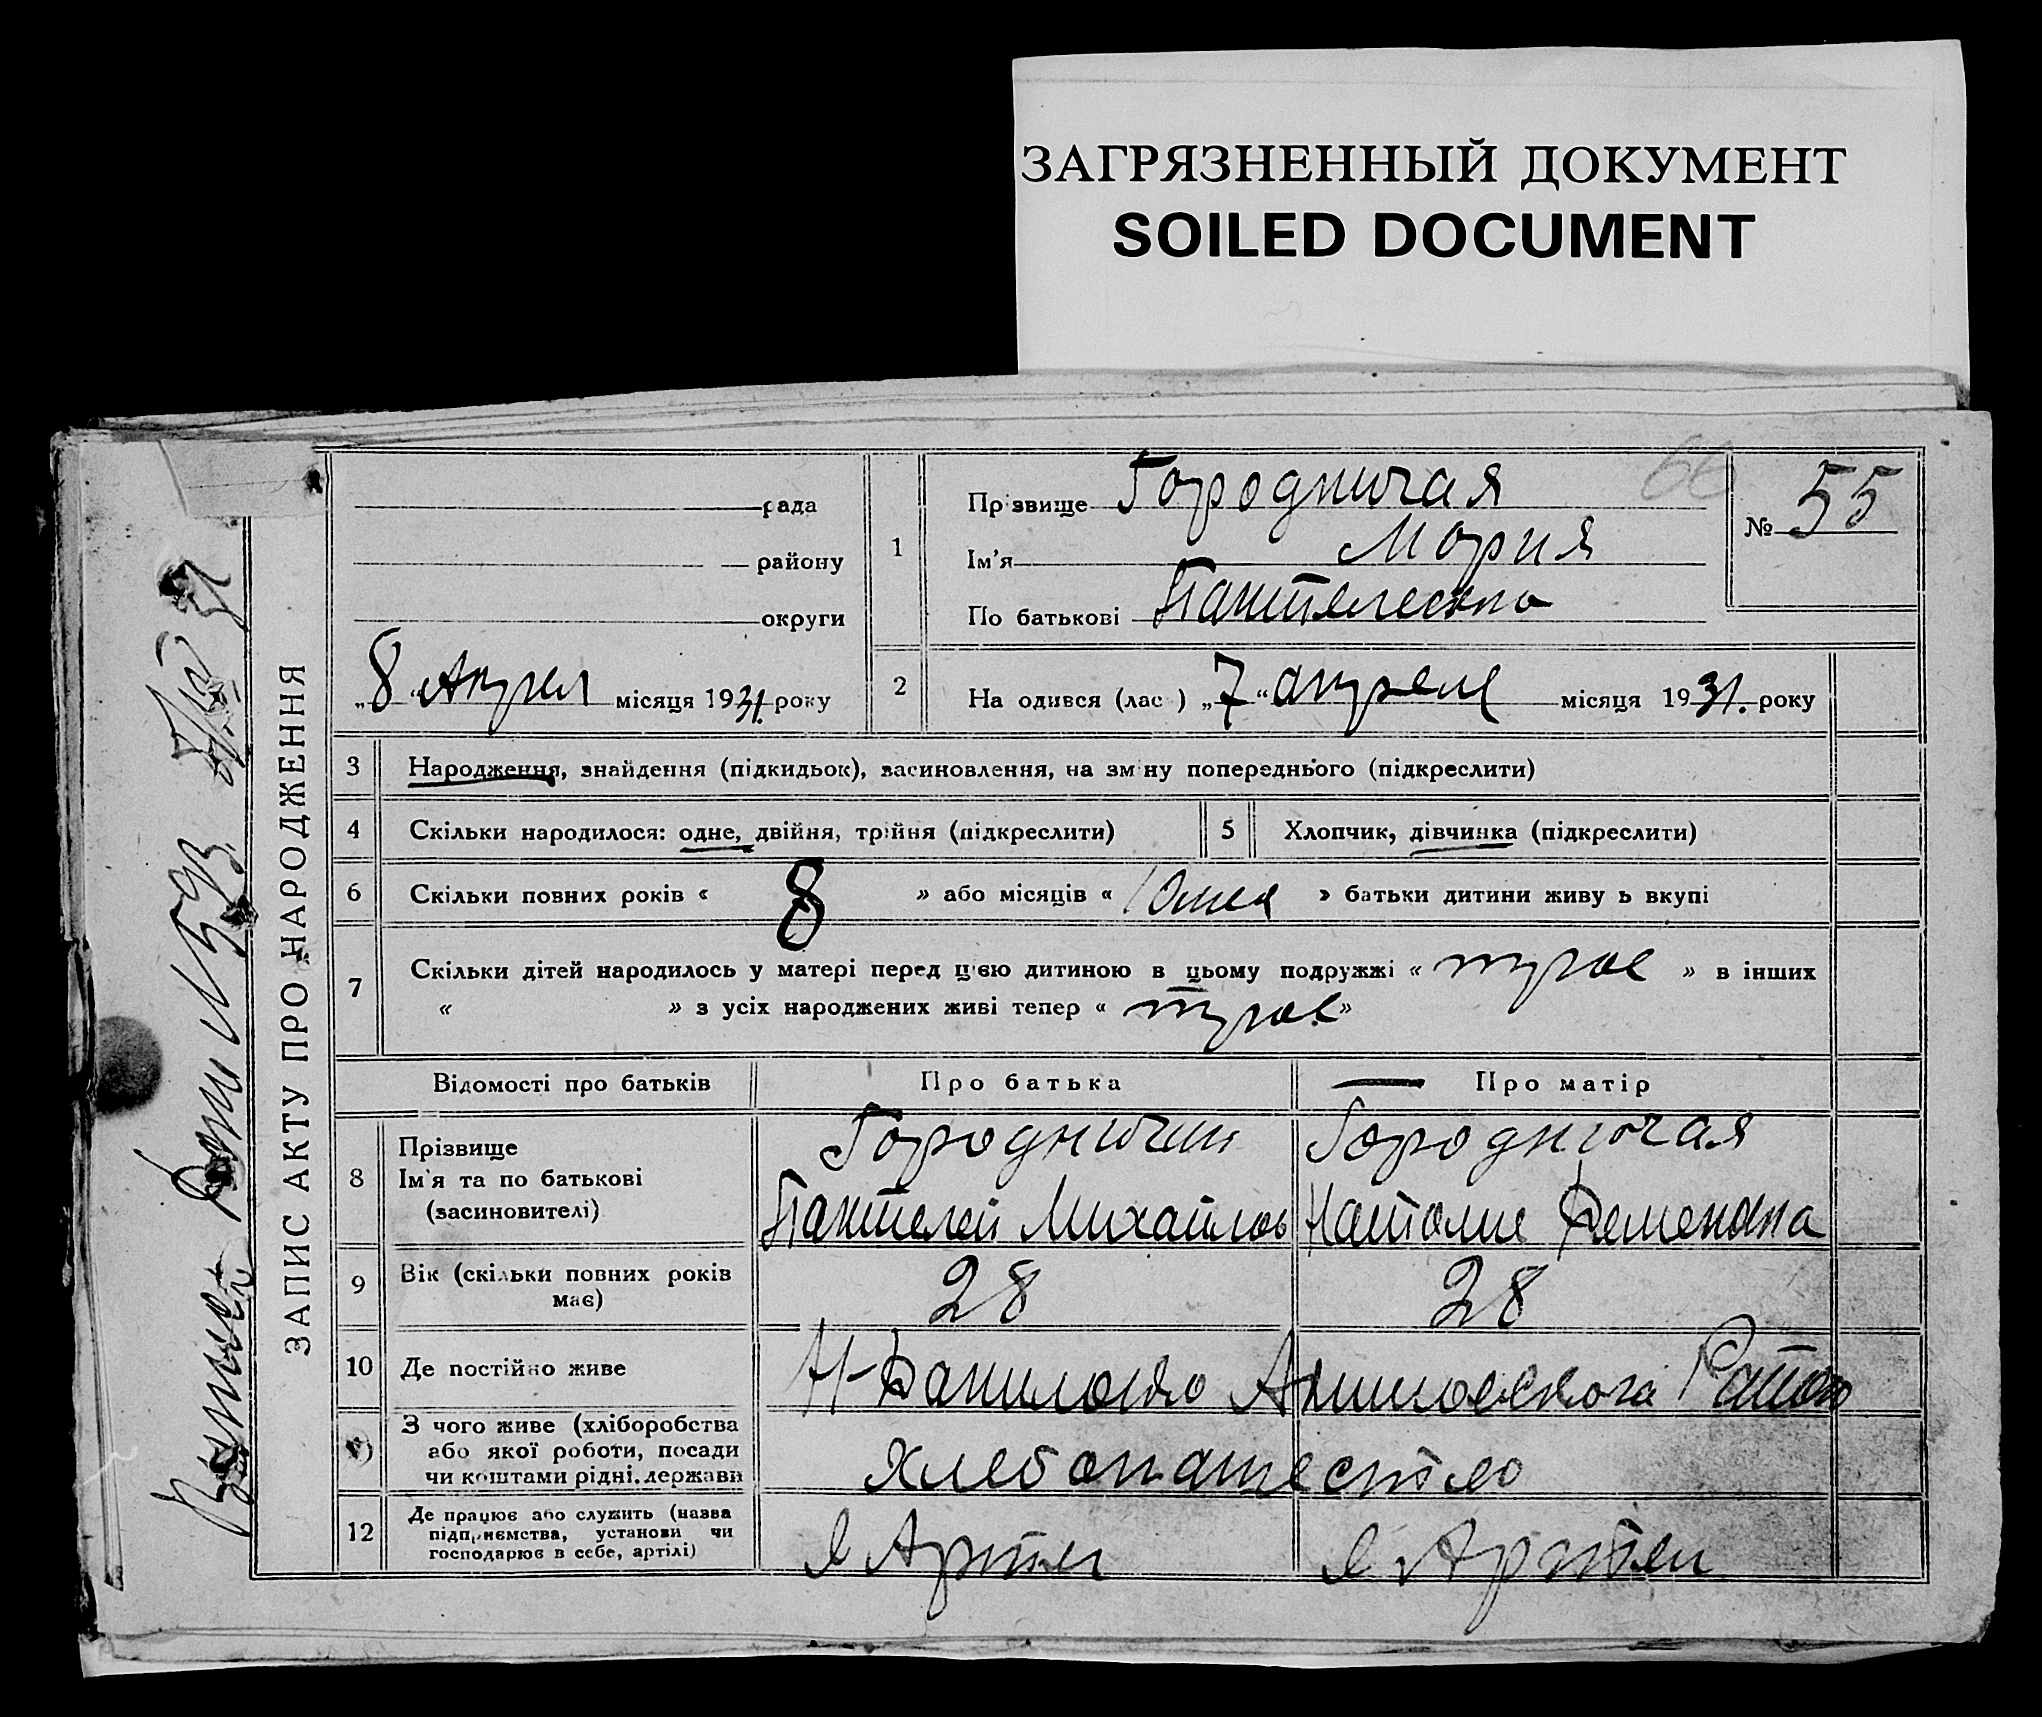 ЗАГРЯЗНЕННЫЙ ДОКУМЕНТ
SOILED DOCUMENT
66
ЗАПИС АКТУ ПРО НАРОДЖЕННЯ
рада
району
округи
„8“ Апрел місяця 1931. року
1
Прізвище Городничая
Ім'я Мория
По батькові
№ 55
2
На одився (лас ) „7“ апреля місяця 1931. року
3 Народження, знайдення (підкидьок), засиновлення, на зміну попереднього (підкреслити)
4 Скільки народилося: одне, двійня, трійня (підкреслити)
5 Хлопчик, дівчинка (підкреслити)
6 Скільки повних років « 8 » або місяців « » батьки дитини живу ь вкупі
7 Скільки дітей народилось у матері перед цією дитиною в цьому подружжі « » в інших
« » з усіх народжених живі тепер « »
Відомості про батьків
Про батька
Про матір
8
Прізвище
Ім'я та по батькові
(засиновителі)
Городничий
Пантелей Михайлов
Городничая
Наталия
9
Вік (скільки повних років
має)
28
28
10 Де постійно живе
Н-Даниловко
З чого живе (хліборобства
або якої роботи, посади
чи коштами рідні, держави
хлебопашество
12
Де працює або служить (назва
підприємства, установи чи
господарює в себе, артілі)
в Артели
в Артели